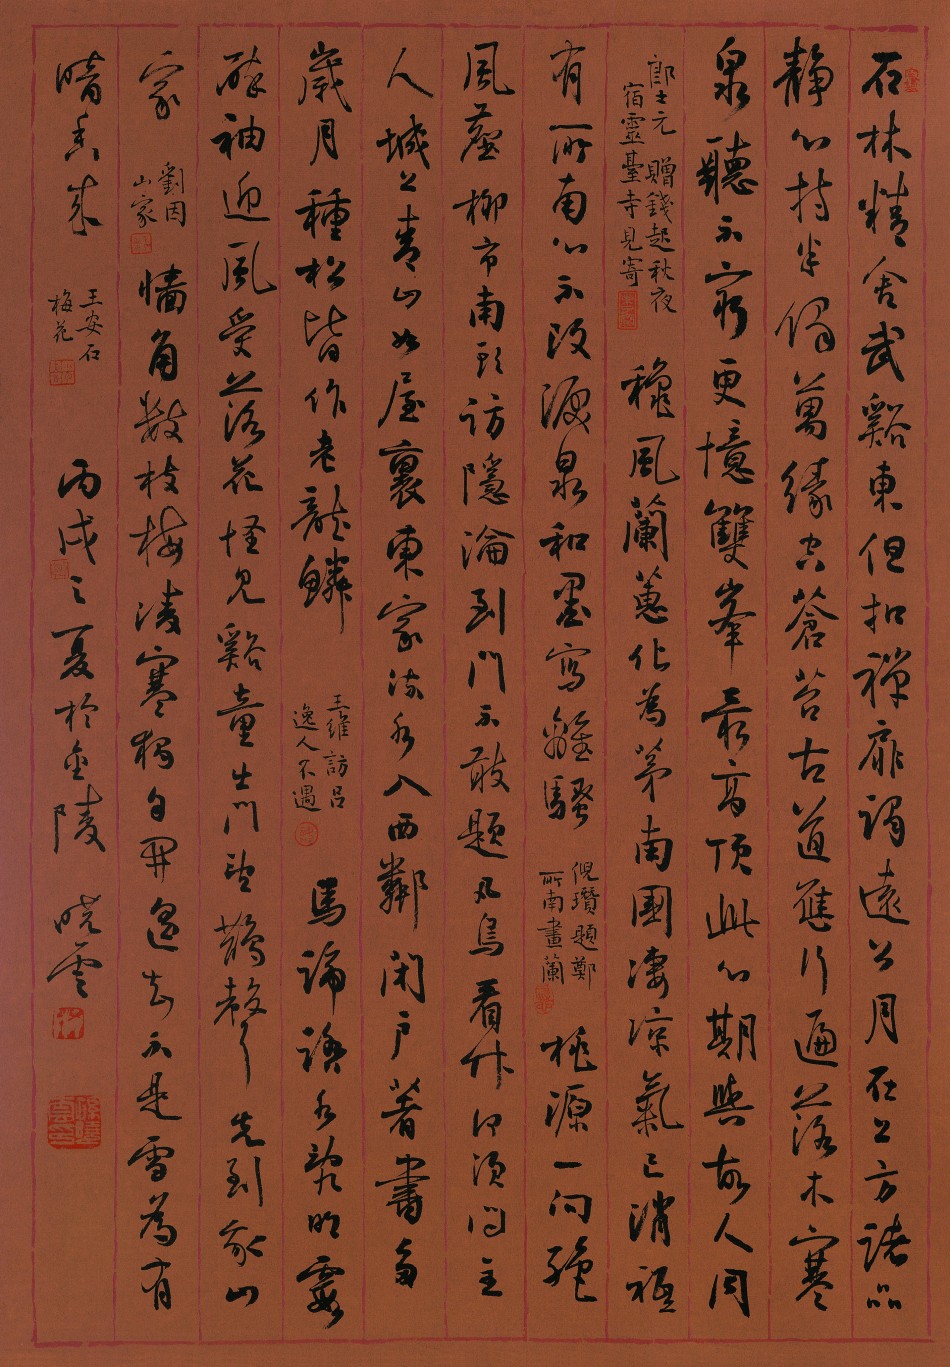 石林精舍武谿東但扣禅扉謁遠公月在上方諸品
静心持半偈萬緣空蒼苔古道應行遍落木寒
泉聽不窮更憶雙峯最高頂此心期與故人同
郎士元贈錢起秋夜
宿靈臺寺見寄
穐風蘭蕙化為茅南國凄凉氣已消祗
有所南心不改淚泉和墨寫離騷
倪瓚題鄭
所南畫蘭
桃源一向絶
風塵柳市南頭訪隱淪到門不敢題凡鳥看竹何須問主
人城上青山如屋裏東家流水入西鄰閉户著書多
歲月種松皆作老龍鱗
王維訪吕
逸人不遇
馬蹄踏水亂明霞
醉袖迎風受落花怪見谿童出門望鵲聲先到我山
家
劉因
山家
墻角數枝梅凌寒獨自開遥知不是雪為有
暗香來
王安石
梅花
丙戌之夏於金陵
曉雲